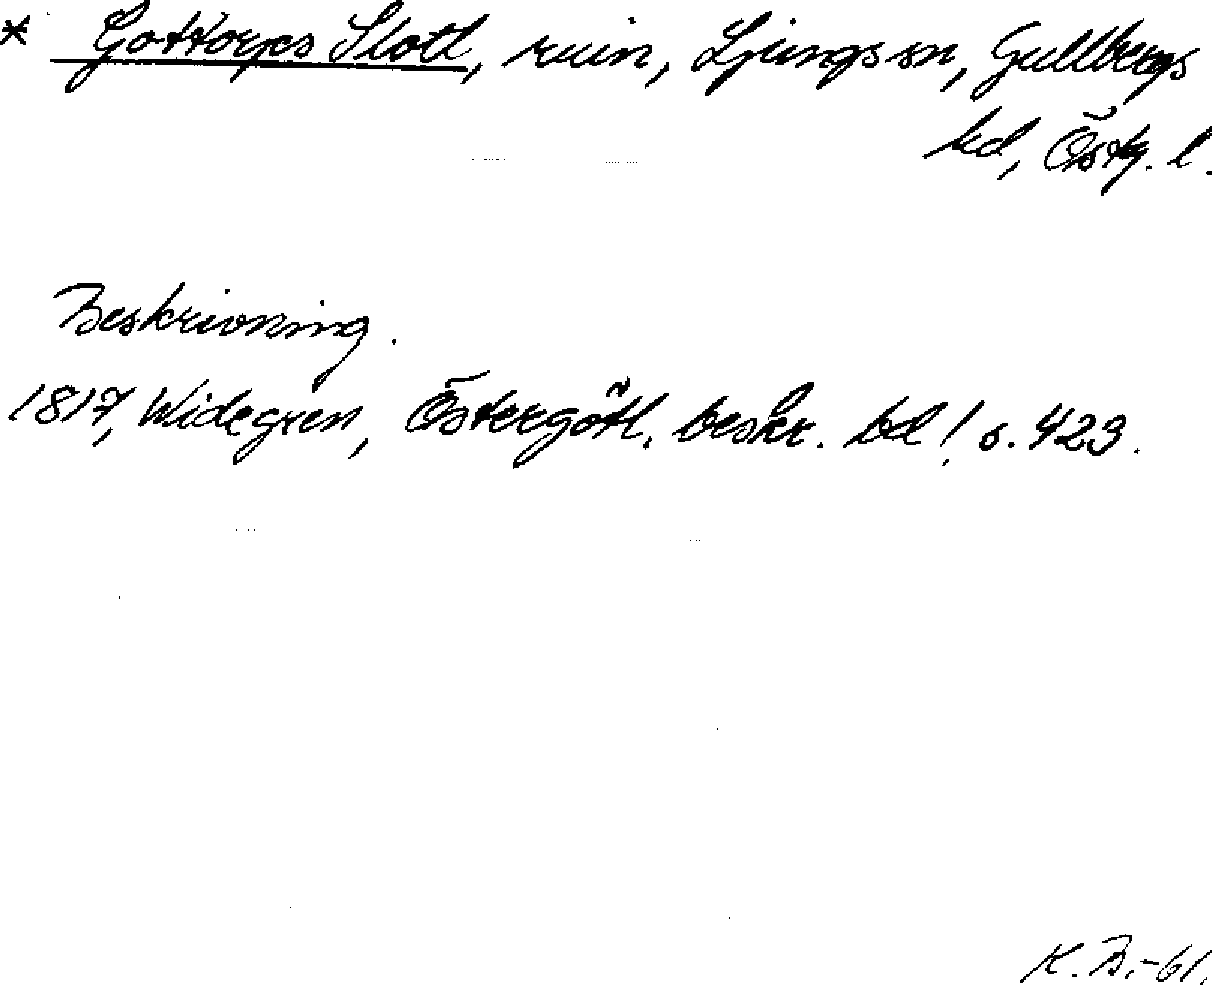 * Gottorps Slott, ruin, Ljungs sn, Gullbergs
hd, Östg. l.
Beskrivning.
1817, Widegren, Östergötl. beskr. bd 1 s. 423.
K. B. -61.